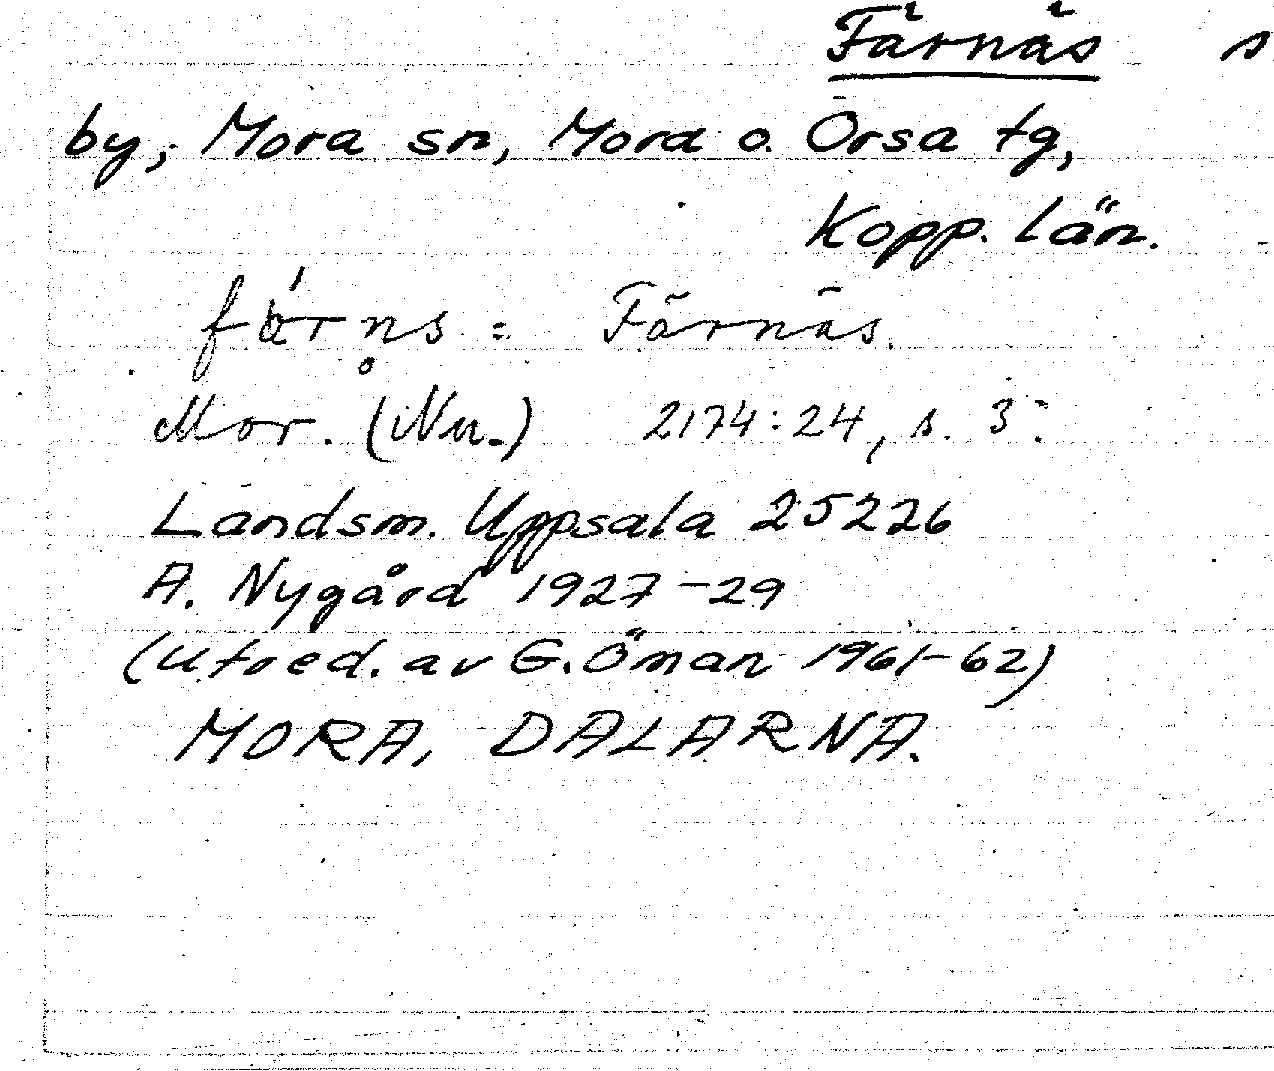 Färnäs s
by; Mora sn, Mora o. Orsa tg,
Kopp. län.
Färnäs.
Mor. (Nu.) 2174:24, s. 3.
Landsm. Uppsala 25226
A. Nygård 1927-29
(Utred. av G. Öman 1961-62)
MORA, DALARNA.